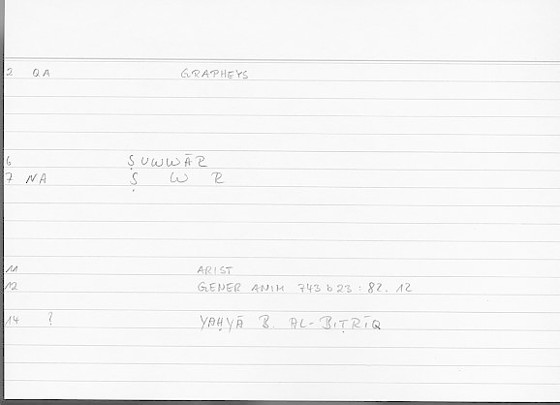 2 QA GRAPHEYS
6 ṢUWWĀR
7 NA Ṣ W R
11 ARIST
12 GENER ANIM 743 b 23 : 82. 12
14 ? YAḤYĀ B. AL-BIṬRĪQ